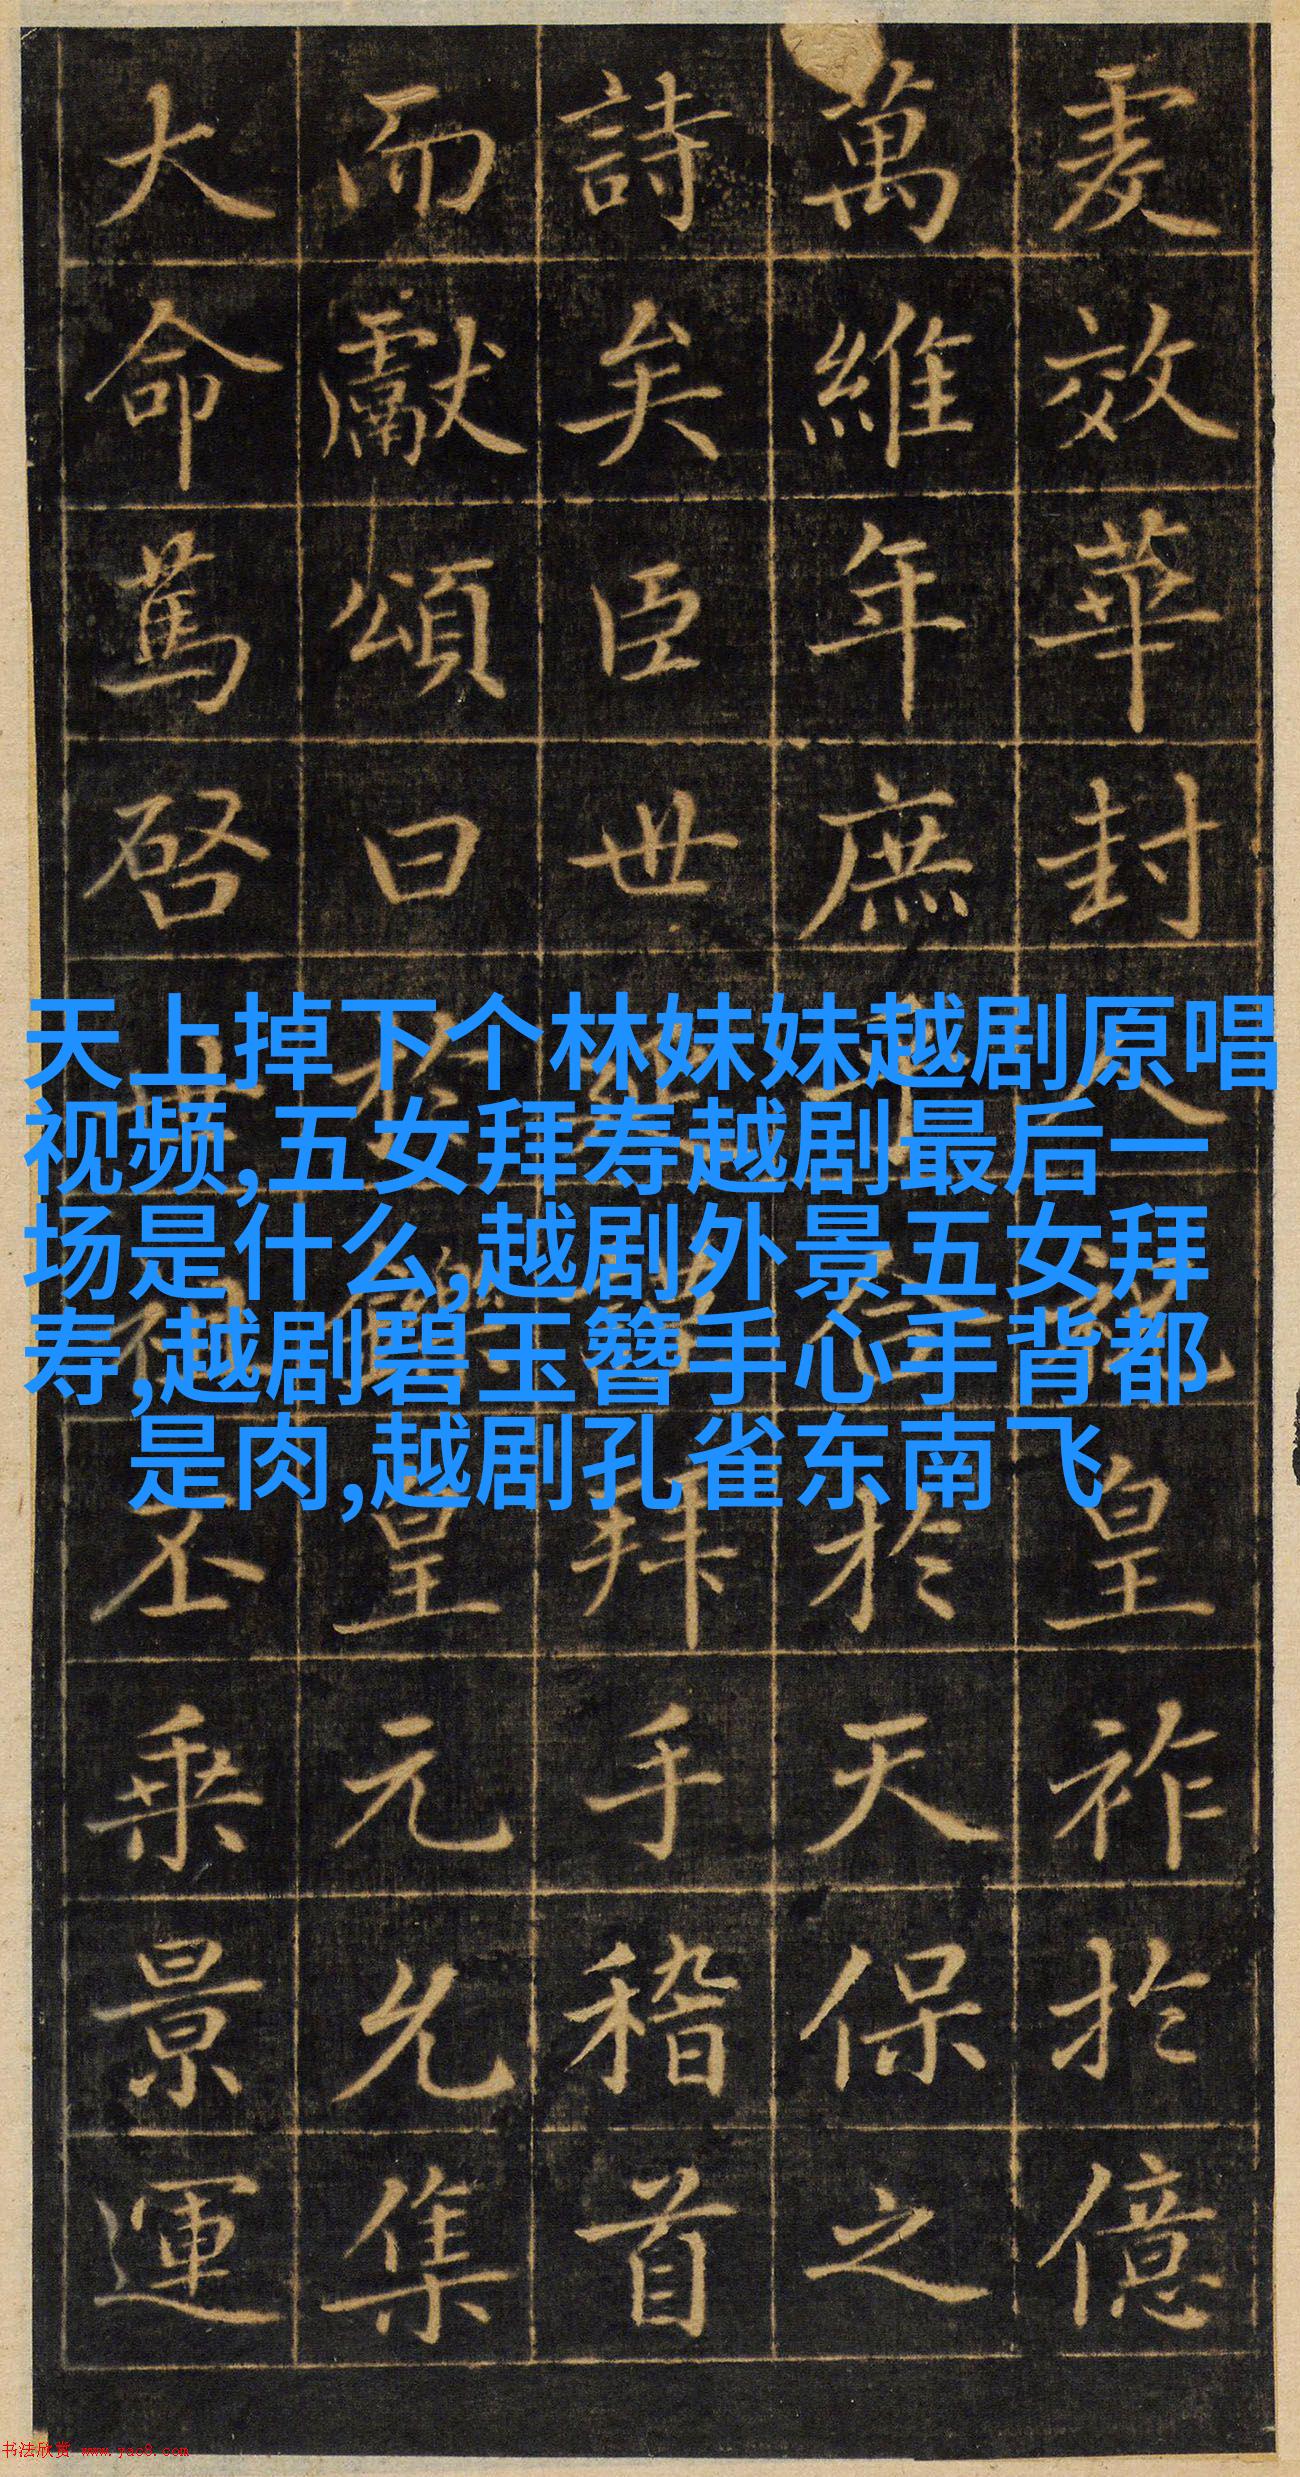 效華封
皇祚於億
萬維年庶
於天保之
詩矣臣世
拜手稽首
而獻頌曰於鑠皇元允集
大命篤啓
丕乘景運
天上掉下个林妹妹越剧原唱
视频,五女拜寿越剧最后一
场是什么,越剧外景五女拜
寿,越剧碧玉簪手心手背都
是肉,越剧孔雀东南飞
书法欣赏 www.yac8.com